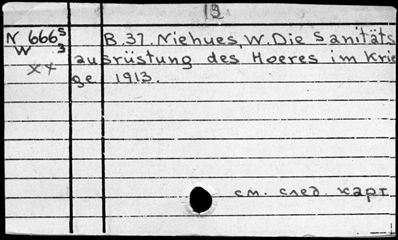 19
N 666 S B.37. Niehues, W. Die Sanitäts
W 3 ausrüstung des Heeres im Krie
XX ge 1913.
см. след. карт